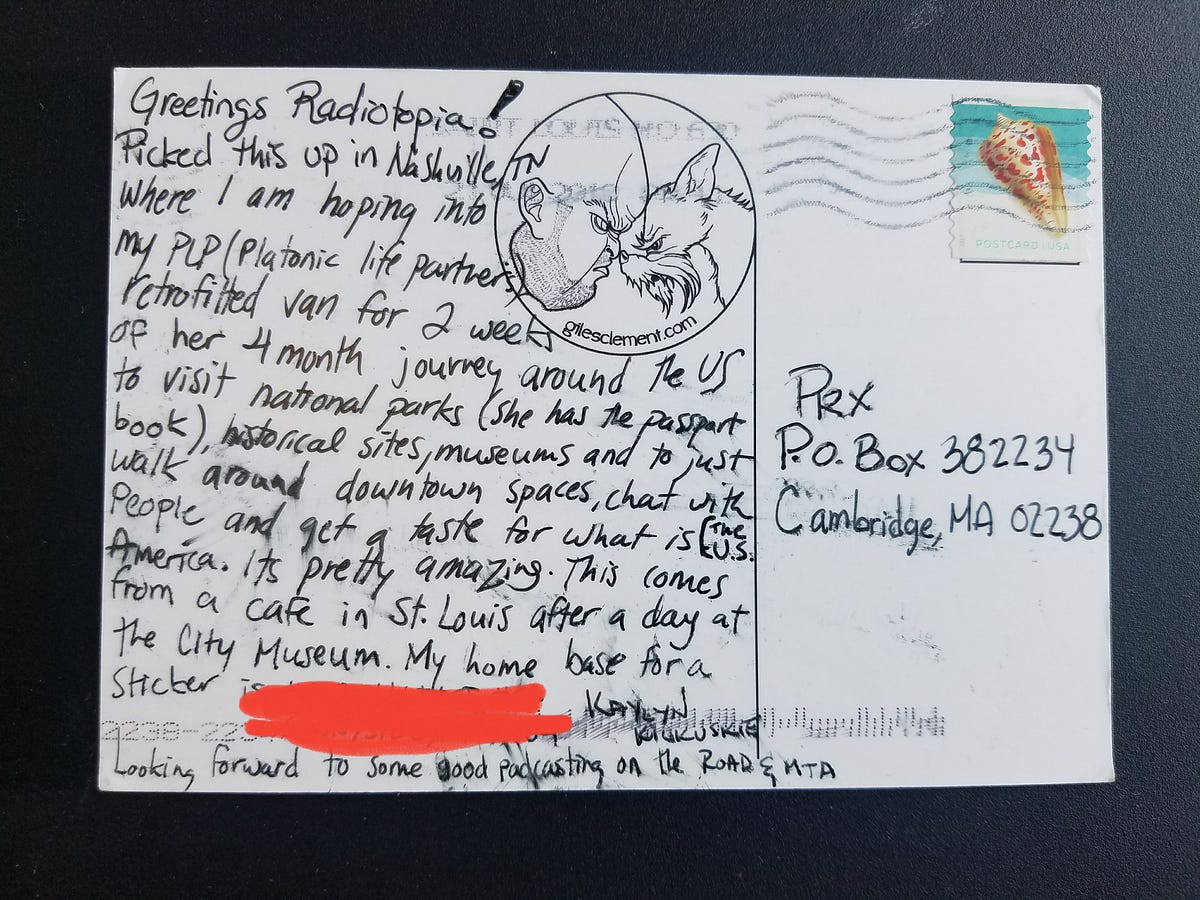 Greetings Radiotopia!
Picked this up in Nashville, TN
where I am hoping into
my PLP (Platonic life partners)
retrofitted van for 2 weeks
of her 4 month journey around the US
to visit national parks (she has the passport
book), historical sites, museums and to just
walk around downtown spaces, chat with
People and get a taste for what is (the
U.S.
America. Its pretty amazing. This comes
from a cafe in St. Louis after a day at
the City Museum. My home base for a
Sticker is
KAYLYN
Looking forward to some good podcasting on the ROAD & MTA
gilesclement.com
POSTCARD | USA
PRX
P.O. Box 382234
Cambridge, MA 02238